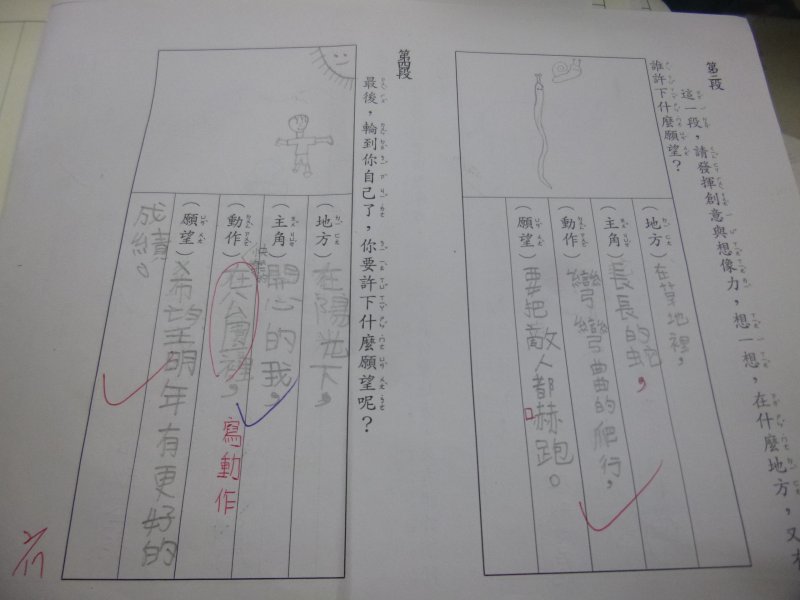 第三段
這一段，請發揮創意與想像力，想一想，在什麼地方，又有
誰許下什麼願望？
（地方）在草地裡，
（主角）長長的蛇，
（動作）彎彎曲的爬行，
（願望）要把敵人都嚇跑。
第四段
最後，輪到你自己了，你要許下什麼願望呢？
（地方）在陽光下，
（主角）開心的我，
（動作）在公園裡，
寫動作
（願望）希望明年有更好的
成績。